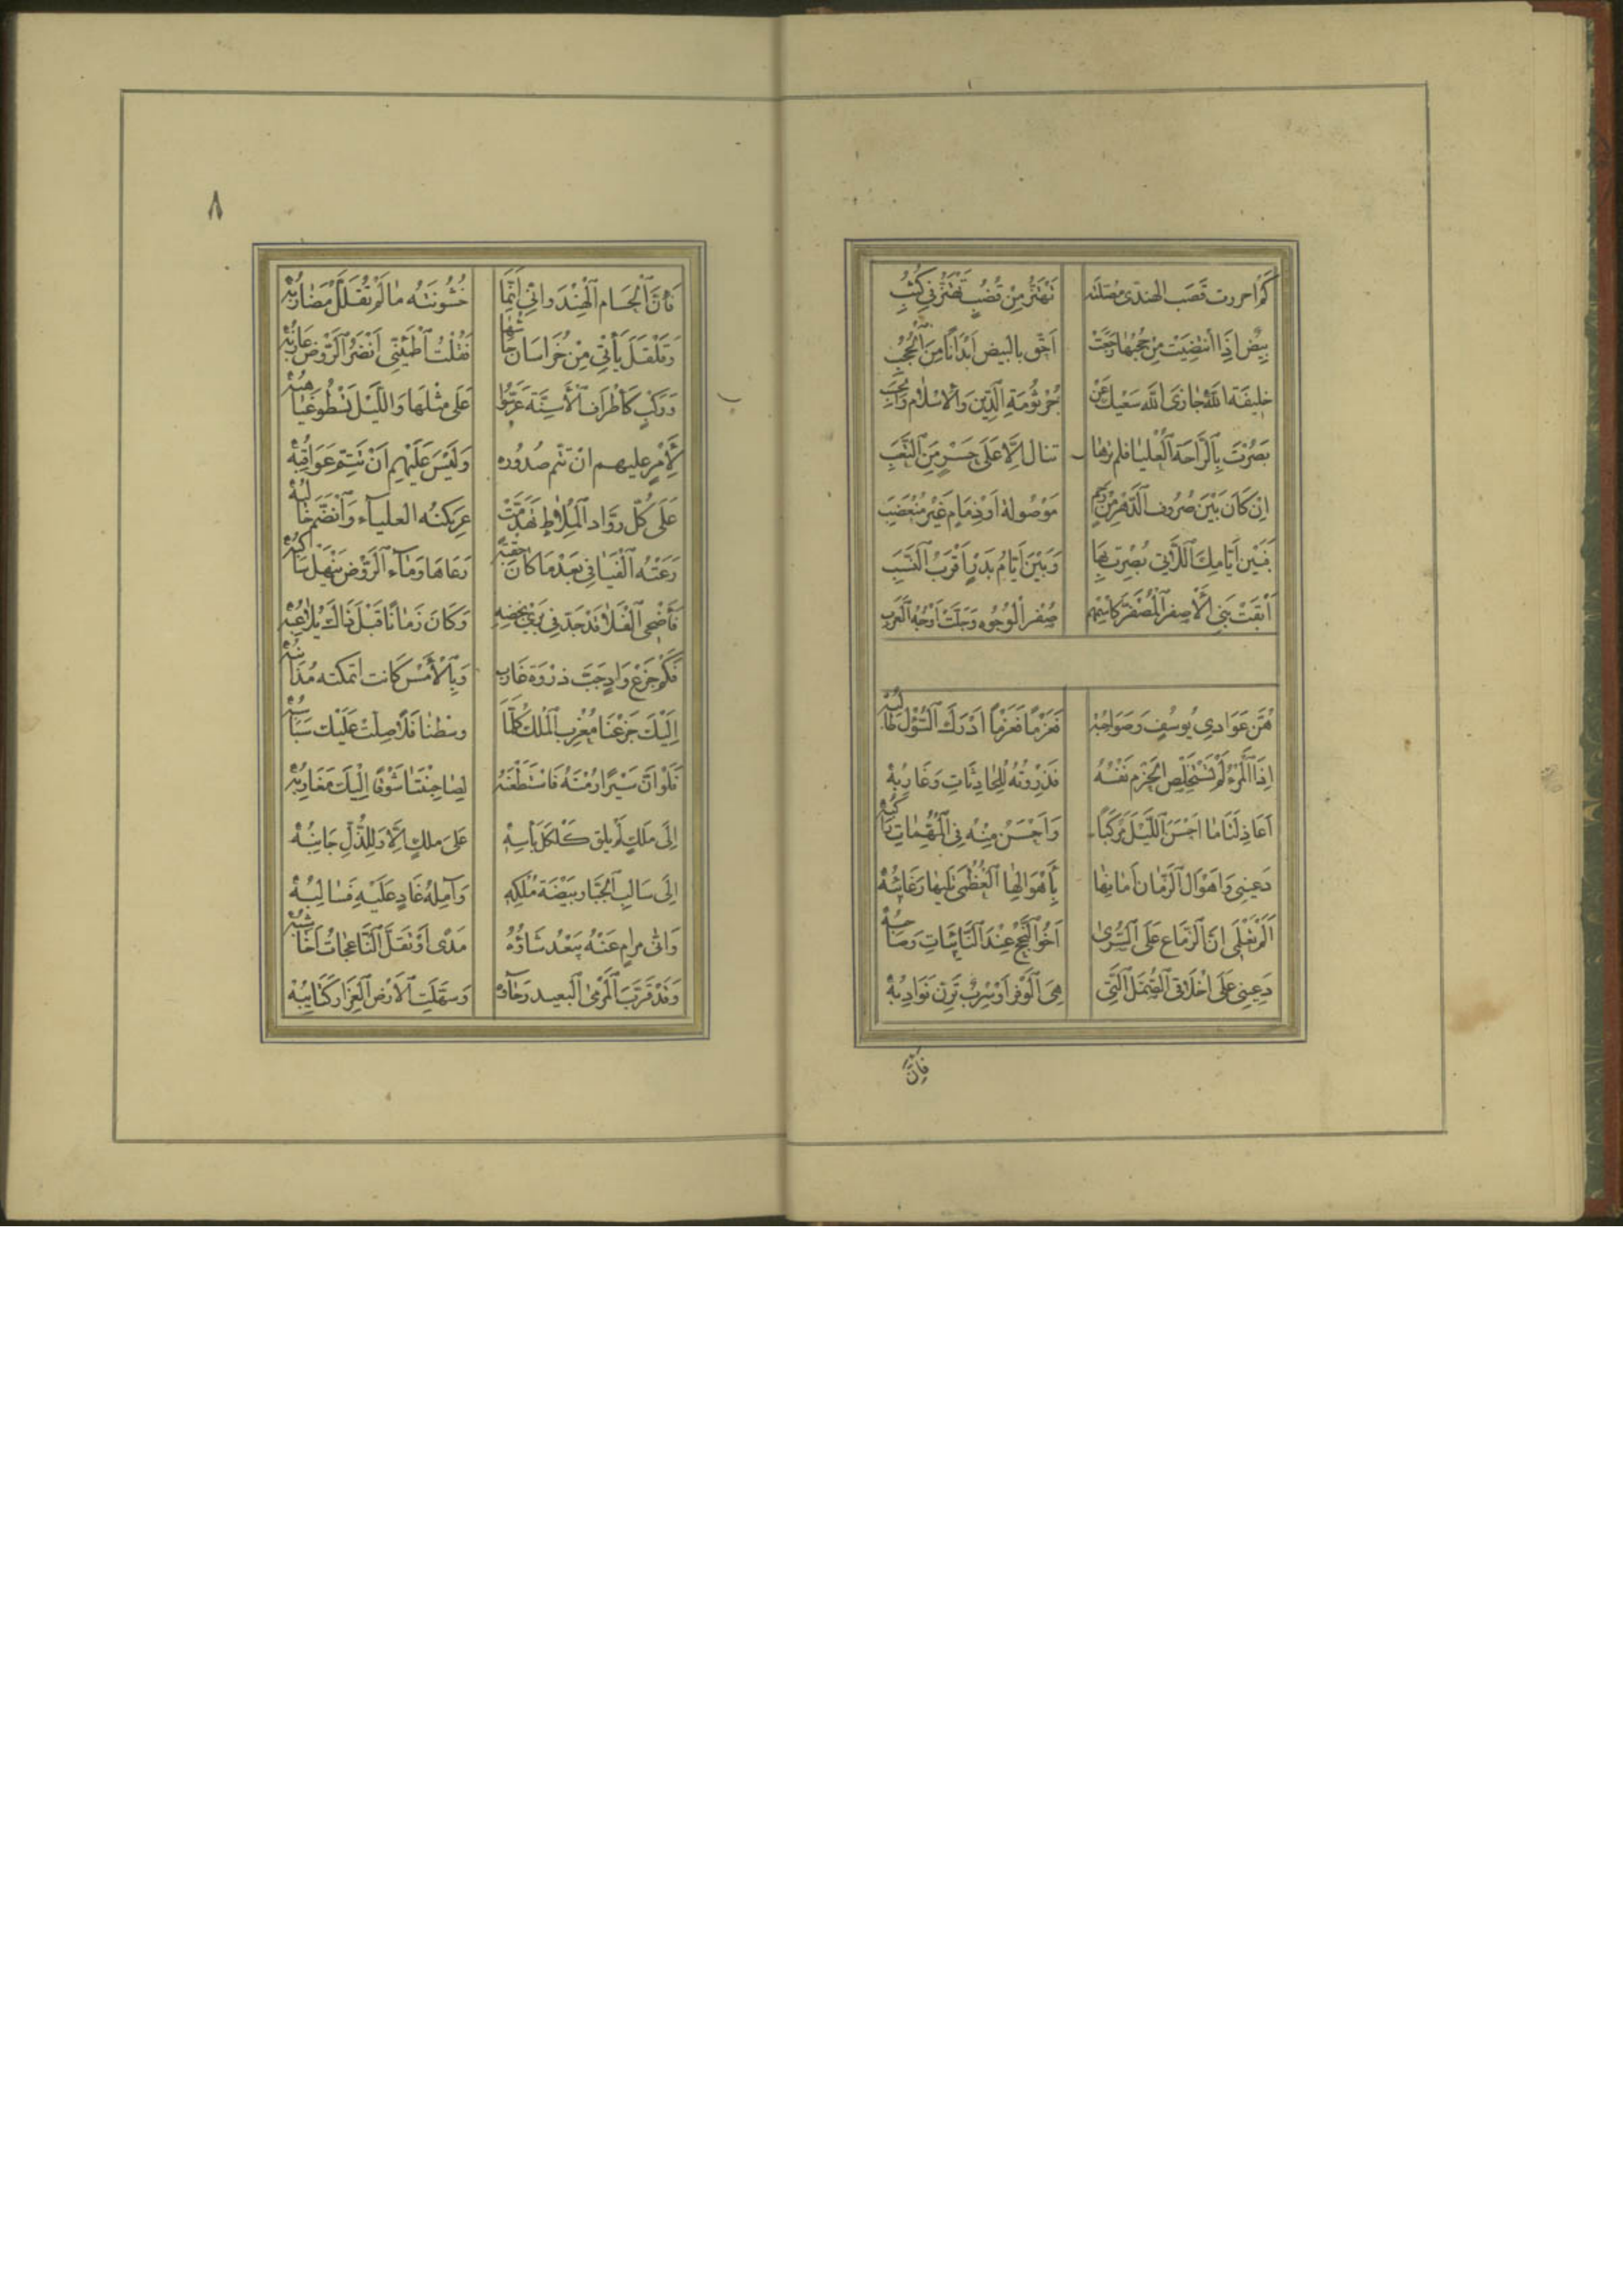 كم احررت قصب الهندى مصلتة تَهْتَزُّ مِنْ قُضُبٍ تَهْتَزُّ فِي كُثُبِ
بِيضٌ اِذَا انْتُضِيَتْ مِنْ حُجْبِهَا رَجَعَتْ اَحَقَّ بالبيض اَبْدَانًا مِنَ الْحُجُبِ
خليفَةَ اللّه جازَى اللّهُ سَعْيَكَ عَنْ جُرْثُومَةِ الدِّينِ وَالْاِسْلَامِ وَالْحَسَبِ
بَصُرْتَ بِالرَّاحَةِ الْعُلْيَا فلم ترها تنال اِلَّا عَلَى جِسْرٍ مِنَ التَّعَبِ
اِنْ كَانَ بَيْنَ صُرُوفِ الدَّهْرِ مِنْ رَحِمٍ مَوْصُولَةٍ اَوْ ذِمَامٍ غَيْرِ مُنْقَضِبِ
فَبَيْنَ اَيَّامِكَ اللَّاتِي نُصِرْتَ بِهَا وَبَيْنَ اَيَّامِ بَدْرٍ اَقْرَبُ النَّسَبِ
اَبْقَتْ بَنِي الْاَصْفَرِ الْمُصْفَرِّ كَاسْمِهِمِ صُفْرَ الْوُجُوهِ وَجَلَّتْ اَوْجُهَ الْعَرَبِ
هُنَّ عَوَادِي يُوسُفٍ وَصَوَاحِبُهْ فَعَزْمًا فَعَزْمًا اَدْرَكَ السُّؤْلَ طَالِبُهْ
اِذَا الْمَرْءُ لَمْ يَسْتَخْلِصِ الْحَزْمَ نَفْسُهُ فَذِرْوَتُهُ لِلْحَادِثَاتِ وَغَارِبُهْ
اَعَاذِلَتَا مَا اَخْشَنَ اللَّيْلَ مَرْكَبًا وَاَخْشَنَ مِنْهُ فِي الْمُلِمَّاتِ رَاكِبُهْ
دَعِينِي وَاَهْوَالَ الزَّمَانِ اُفَانِهَا فَاَهْوَالُهَا الْعُظْمَى تَلِيهَا رَغَائِبُهْ
اَلَمْ تَعْلَمِي اَنَّ الزَّمَاعَ عَلَى السُّرَى اَخُو النُّجْحِ عِنْدَ النَّائِبَاتِ وَصَاحِبُهْ
دَعِينِي عَلَى اَخْلَاقِيَ الصُّمُلِ الَّتِي هِيَ الْوَفْرُ اَوْ سِرْبٌ تَرِنُّ نَوَادِبُهْ
فَاِنَّ
٨
فَاِنَّ الْحُسَامَ الْهِنْدُوَانِيَّ اِنَّمَا خُشُونَتُهُ مَا لَمْ تُفَلَّلْ مَضَارِبُهْ
وَقَلْقَلَ نَأْيٌ مِنْ خُرَاسَانَ جَاْشَهَا فَقُلْتُ اطْمَئِنِّي اَنْضَرُ الرَّوْضِ عَازِبُهْ
وَرَكْبٍ كَاَطْرَافِ الْاَسِنَّةِ عَرَّسُوا عَلَى مِثْلِهَا وَاللَّيْلُ تَسْطُو غَيَاهِبُهْ
لِاَمْرٍ عليهم انْ تتم صُدُوره وَلَيْسَ عَلَيْهِمْ اَنْ تَتِمَّ عَوَاقِبُهْ
عَلَى كُلِّ رَوَّادِ الْمِلَاطِ تَهَدَّمَتْ عَرِيكَتُهُ العلياء وَانْضَمَّ حَالِبُهْ
رَعَتْهُ الْفَيَافِي بَعْدَ مَا كَانَ حِقْبَةً رَعَاهَا وَمَاءُ الرَّوْضِ يَنْهَلُّ سَاكِبُهْ
فَاَضْحَى الْفَلَا قَدْ جَدَّ فِي بَرْيِ نَحْضِهِ وَكَانَ زَمَانًا قَبْلَ ذَاكَ يُلَاعِبُهْ
فَكَمْ جِزْعِ وَادٍ جَبَّ ذِرْوَةَ غَارِبٍ وَبِالْاَمْسِ كَانت اتمكته مَذَانِبُهْ
اِلَيْكَ جَزَعْنَا مَغْرِبَ الْمُلْكِ كُلَّمَا وسَطْنَا فَلًا صلت عَلَيْكَ سَبَاسِبُهْ
فَلَوْ اَنَّ سَيْرًا رُمْتَهُ فَاسْتَطَعْتَهُ لَصَاحَبْتَنَا شَوْقًا اِلَيْكَ مَغَارِبُهْ
اِلَى مَلِكٍ لَمْ يلق كَلْكَلَ بَاْسِهِ عَلَى مَلِكٍ اِلَّا وَلِلذُّلِّ جَانِبُهْ
اِلَى سَالِبِ الْجَبَّارِ بَيْضَةَ مُلْكِهِ وَآمِلُهُ غَادٍ عَلَيْهِ فَسَالِبُهْ
وَاَيُّ مَرَامٍ عَنْهُ يَبْعُدُ شَاْوُهُ مَدًى اَوْ تَفُلُّ النَّاعِجَاتِ اَخَاشِبُهْ
وَقَدْ قَرَّبَ الْمَرْمَى الْبَعِيدَ رَجَاؤُهُ وَسَهَّلَتِ الْاَرْضَ الْعَزَازَ كَتَائِبُهْ